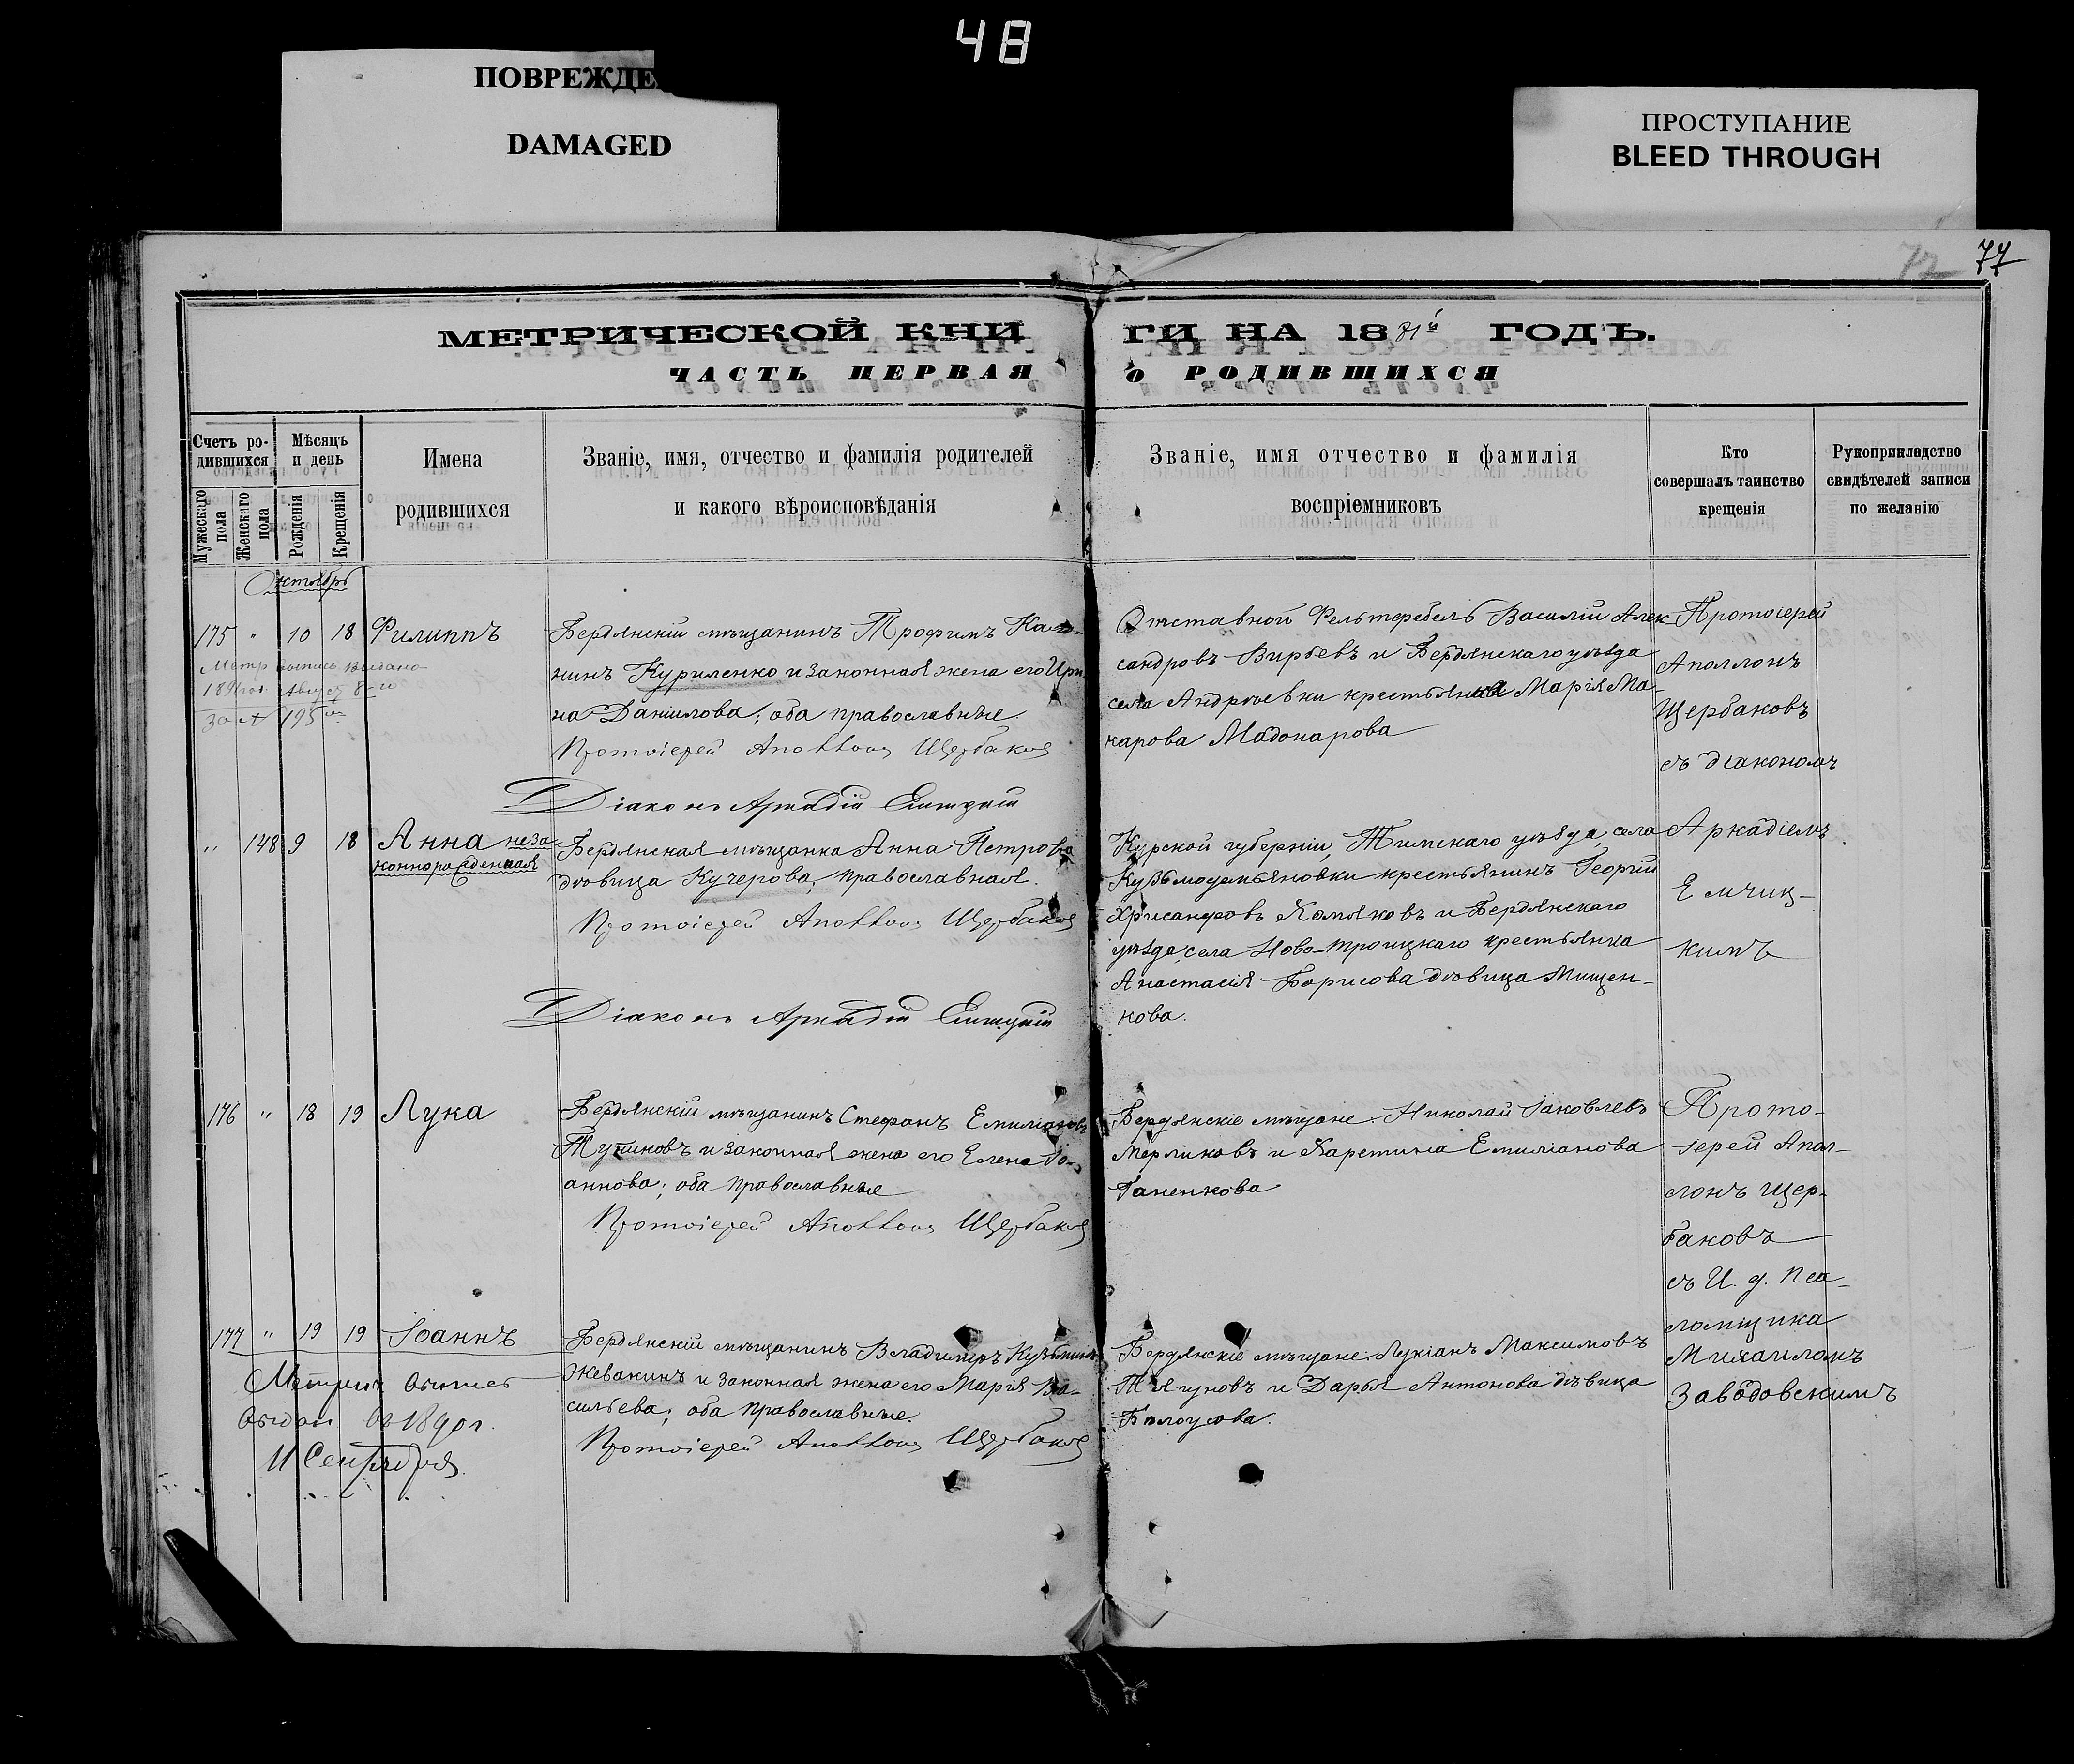 48
ПОВРЕЖДЕ
DAMAGED
ПРОСТУПАНИЕ
BLEED THROUGH
72 77
МЕТРИЧЕСКОЙ КНИ ГИ НА 18 ГОДЪ.
ЧАСТЬ ПЕРВАЯ О РОДИВШИХСЯ
Счетъ ро-
дившихся
Мужескаго пола
Женскаго пола
Мѣсяцъ
и день
Рожденія
Крещенія
Имена
родившихся
Званіе, имя, отчество и фамилія родителей
и какого вѣроисповѣданія
Званіе, имя отчество и фамилія
воспріемниковъ
Кто
совершалъ таинство
крещенія
Рукоприкладство
свидѣтелей записи
по желанію
Октябрь
175 " 10 18 Филиппъ
Метр выпись выдана
Август 8-го
За № 195
Бердянскій мѣщанинъ Трофимъ
нинъ Куриленко и законная жена его Ири
на Даніилова; оба православные.
Протоіерей Аполлонъ Щербаковъ
Діаконъ Аркадій Емчицкій
Отставной Фельтфебель Василій Алек
сандровъ Вирьевъ и Бердянскаго уѣзда
села Андреевки крестьянка Марія Ма-
карова Мадонарова
Протоіерей
Аполлонъ
Щербаковъ
съ діакономъ
" 148 9 18 Анна неза
коннорожденная
Бердянская мѣщанка Анна Петрова
дѣвица Кучерова; православная.
Протоіерей Аполлонъ Щербаковъ
Діаконъ Аркадій Емчицкій
Курской губерніи, Тимскаго уѣзда, села
Кузьмодемьяновки крестьянинъ Георгій
Хрисанфовъ Хомяковъ и Бердянскаго
уѣзда, села Ново-Троицкаго крестьянка
Анастасія Борисова дѣвица Мищен-
кова.
Аркадіемъ
Емчиц-
кимъ
176 " 18 19 Лука
Бердянскій мѣщанинъ Стефанъ Емиліановъ
Тупиковъ и законная жена его Елена Іо-
аннова; оба православные
Протоіерей Аполлонъ Щербаковъ
Бердянскіе мѣщане: Николай Іаковлевъ
Мерликовъ и Харетина Емиліанова
Ганенкова
Прото-
іерей Апол-
лонъ Щер-
баковъ
съ И. д. Пса-
ломщика
Михаиломъ
Заводовскимъ
177 " 19 19 Іоаннъ
Метрич выпись
выдан въ 1890 г.
11 Сентября
Бердянскій мѣщанинъ Владимиръ Кузьминъ
Жевакинъ и законная жена его Марія Ва-
сильева; оба православные.
Протоіерей Аполлонъ Щербаковъ
Бердянскіе мѣщане: Лукіанъ Максимовъ
Тягуновъ и Дарья Антонова дѣвица
Бѣлоусова.